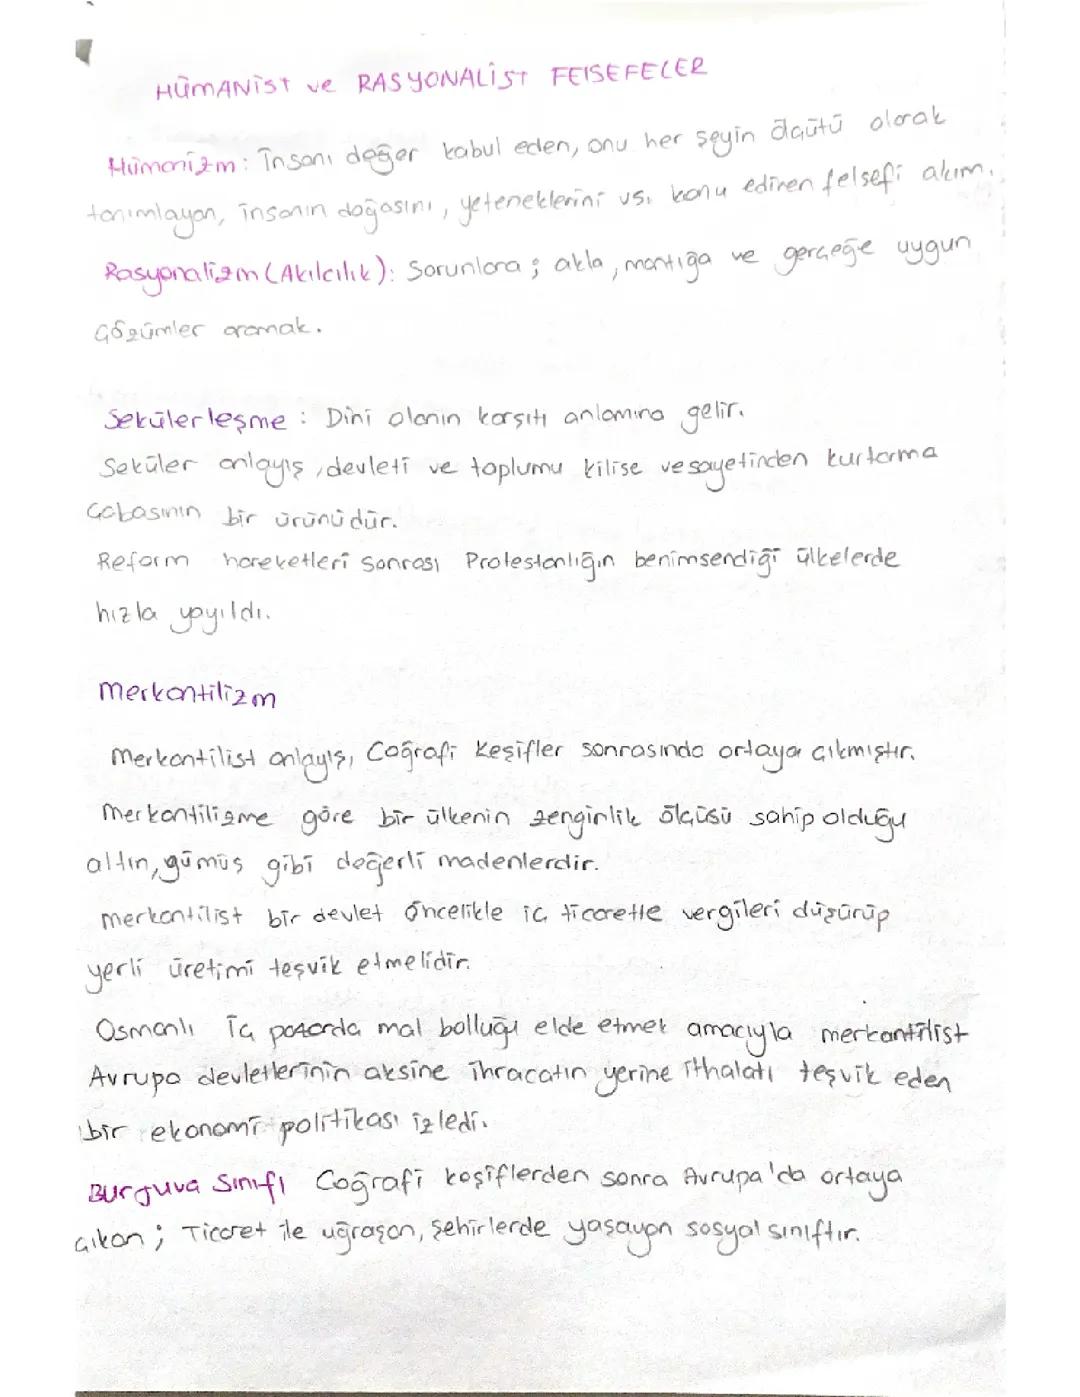 HÜMANİST ve RASYONALİST FELSEFELER
Hümanizm: İnsanı değer kabul eden, onu her şeyin ölçütü olarak
tanımlayan, insanın doğasını, yeteneklerini vs. konu edinen felsefi akım.
Rasyonalizm (Akılcılık): Sorunlara; akla, mantığa ve gerçeğe uygun
çözümler aramak.
Sekülerleşme: Dini olanın karşıtı anlamına gelir.
Seküler anlayış, devleti ve toplumu kilise vesayetinden kurtarma
çabasının bir ürünüdür.
Reform hareketleri sonrası Protestanlığın benimsendiği ülkelerde
hızla yayıldı.
Merkantilizm
Merkantilist anlayış, Coğrafi Keşifler sonrasında ortaya çıkmıştır.
Merkantilizme göre bir ülkenin zenginlik ölçüsü sahip olduğu
altın, gümüş gibi değerli madenlerdir.
merkantilist bir devlet öncelikle iç ticarette vergileri düşürüp
yerli üretimi teşvik etmelidir.
Osmanlı İç pazarda mal bolluğu elde etmek amacıyla merkantilist
Avrupa devletlerinin aksine ihracatın yerine ithalatı teşvik eden
bir ekonomi politikası izledi.
Burjuva Sınıfı Coğrafi keşiflerden sonra Avrupa'da ortaya
çıkan; Ticaret ile uğraşan, şehirlerde yaşayan sosyal sınıftır.